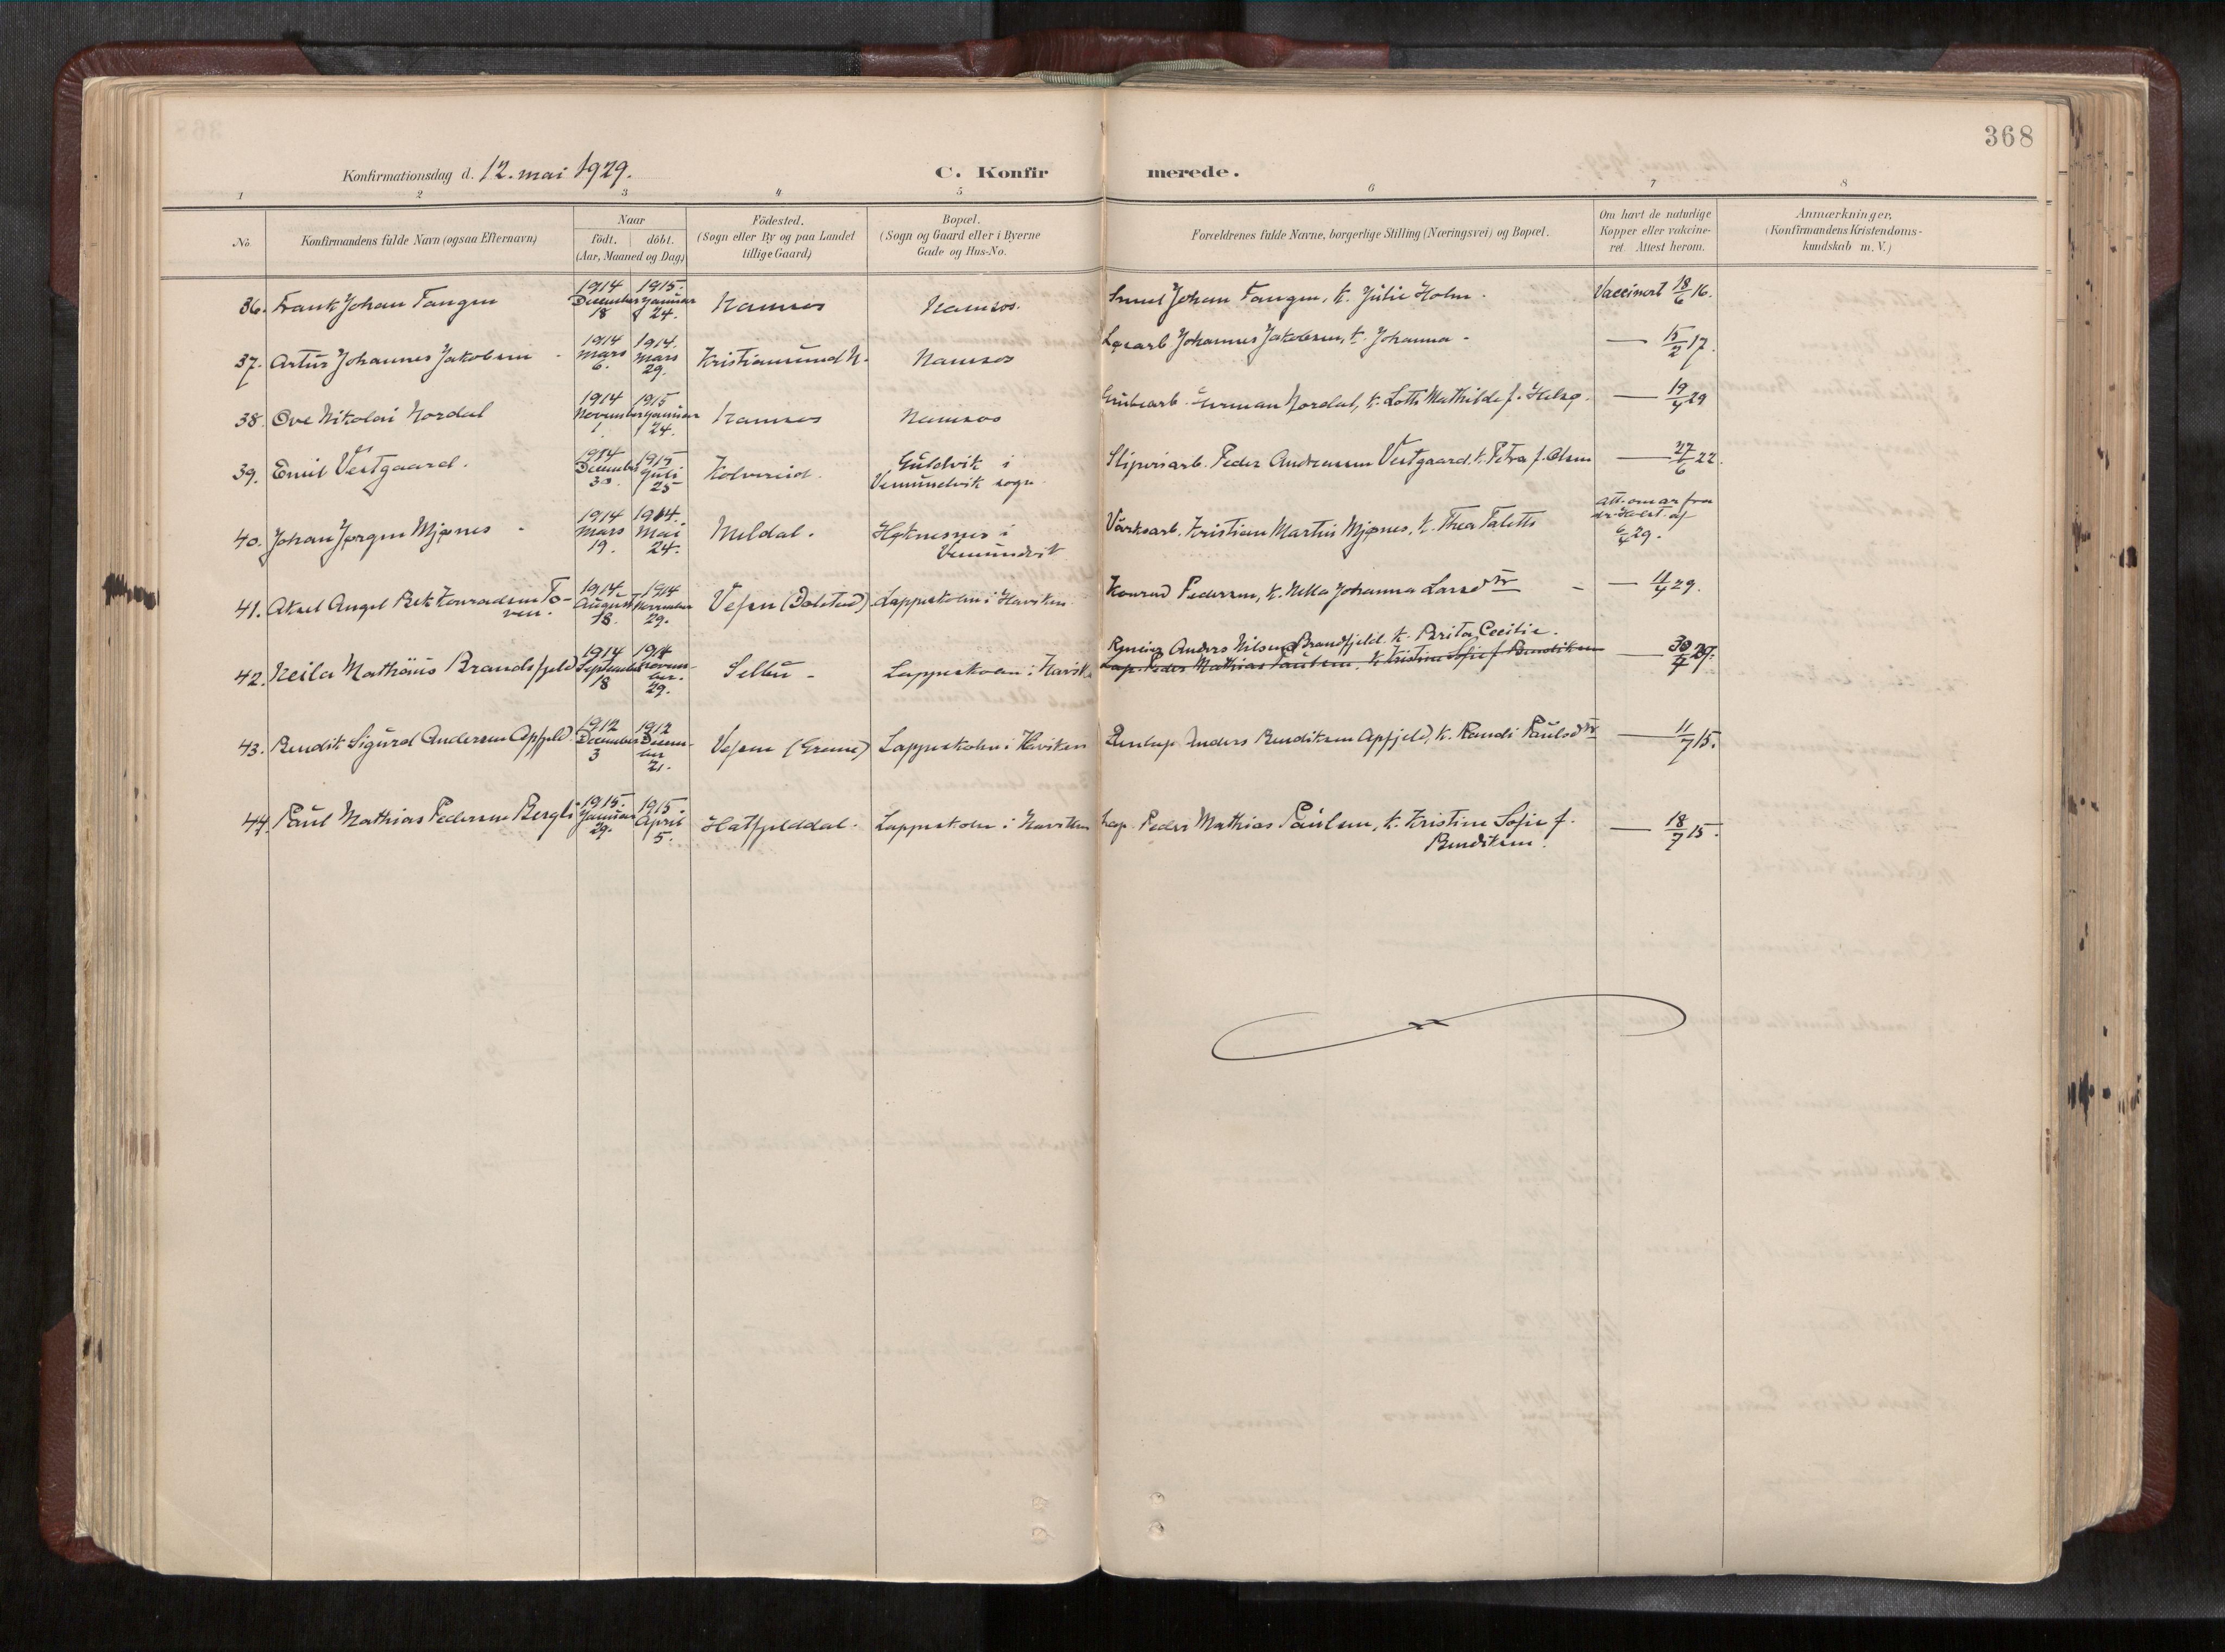 368
Konfirmationsdag d. 12. mai 1929.
C. Konfirmerede.
1 2 3 4 5 6 7 8
No. Konfirmandens fulde Navn (ogsaa Efternavn)
Naar
födt. döbt.
(Aar, Maaned og Dag)
Födested.
(Sogn eller By og paa Landet
tillige Gaard)
Bopæl.
(Sogn og Gaard eller i Byerne
Gade og Hus-No.
Forældrenes fulde Navne, borgerlige Stilling (Næringsvei) og Bopæl.
Om havt de naturlige
Kopper eller vakcine-
ret. Attest herom.
Anmærkninger.
(Konfirmandens Kristendoms-
kundskab m. V.)
36. Frank Johan Tangen
1914 December 18
1915. Januar 24.
Namsos
Namsos.
Johan Tangen, k. Julie Holm.
Vaccinert 18/6 16.
37. Artur Johannes Jakobsen
1914 Mars 6.
1914. Mars 29.
Kristiansund N.
Namsos
Løsarb. Johannes Jakobsen, k. Johanna -
— 15/2 17.
38. Ove Nikolai Nordal
1914 November 1.
1915 Januar 24.
Namsos
Namsos
Herman Nordal, k. Lotti Mathilde f.
— 19/4 29
39. Emil Vestgaard.
1914 December 30.
1915 Juli 25
Kolvereid.
Guldvik i
Vemundvik sogn
Sliperiarb. Peder Andreassen Vestgaard, k. Petra f. Olsen
— 27/6 22.
40. Johan Jørgen Mjønes
1914 Mars 19.
1914. Mai 24.
Meldal.
Høknesnes i
Vemundvik
Värksarb. Kristian Martin Mjønes, k. Thea Taletta
6/4 29.
41. Aksel Angel Bek Konradsen To-
ven.
1914 August 18.
1914 November 29.
Vefsn (Dolstad)
Lappeskolen i Haviken
Konrad Pedersen, k. Nella Johanna Larsdtr
— 11/4 29.
42. Neila Mathäus Brandsfjeld
1914 September 18
1914 Novem-
ber. 29.
Selbu -
Lappeskolen i Havik
Reneier Anders Nilsen Brandfjeld k. Brita Cecilie.
Lap. Peder Mathias Paulsen, k. Kristine Sofie f. Bendiksen
— 30/4 29.
43. Bendik Sigurd Andersen Apfjeld.
1912 December 3
1912 Decem-
ber 21.
Vefsn (Grane)
Lappeskolen i Haviken
Anders Bendiksen Apfjeld, k. Randi Paulsdtr
— 11/7 15.
44. Paul Mathias Pedersen Bergli
1915. Januar 29.
1915 April 5.
Hatfjelddal.
Lappeskolen i Haviken
Lap. Peder Mathias Paulsen, k. Kristine Sofie f.
Bendiksen.
— 18/7 15.